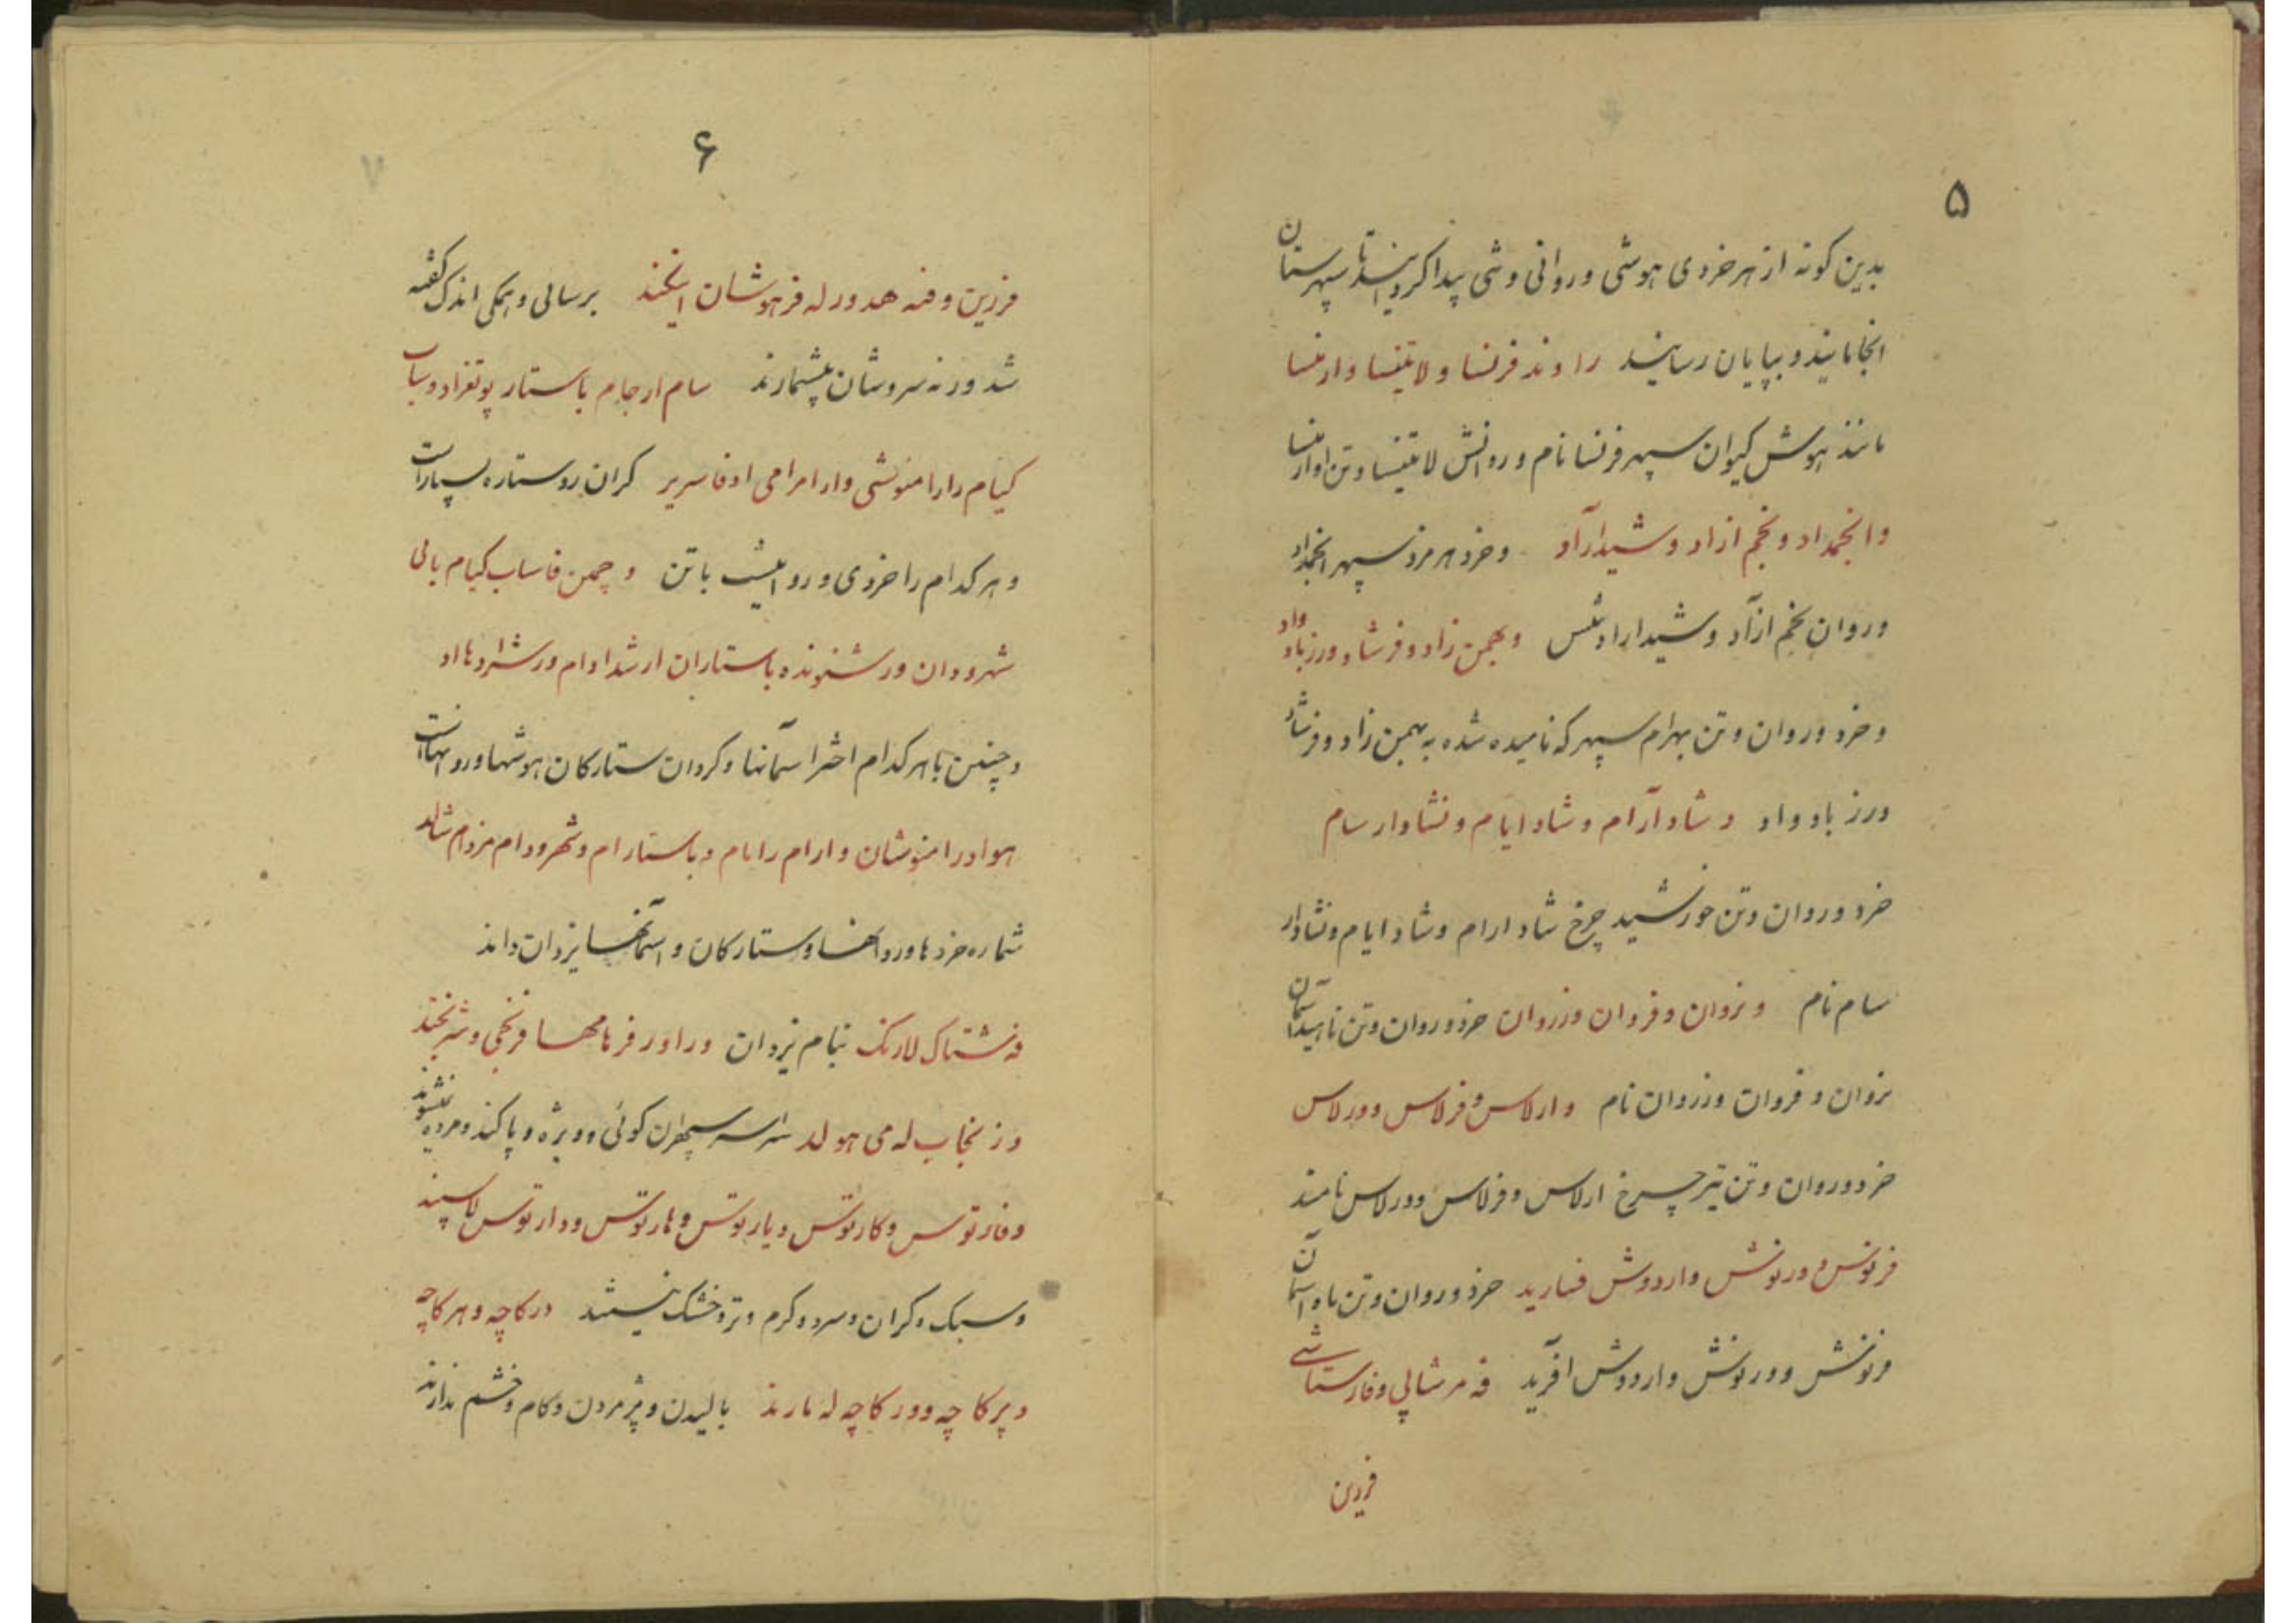 ۵
بدین کونه از هر خردی هوشی و روانی و شی پیدا کردانید تا سپهرستان
انجامانید و بپایان رسانید راوند فرنسا و لاتینسا و ارمنسا
مانند هوش کیوان سپهر فرنسا نام و روانش لاتینسا و تن او ارمنسا
و انجمداد و نجم ازاد و شیدارآد و خرد هرمزد سپهر انجمداد
و روان نجم ازآد و شیداراد تنش و بهمن زاد و فرشاد و رزباد واد
و خرد و روان و تن بهرام سپهر که نامیده شده به بهمن زاد و فرشاد
و رزباد واد و شاد آرام و شاد ایام و نشادار سام
خرد و روان و تن خورشید چرخ شاد ارام و شاد ایام و نشادار
سام نام و نروان و فروان و زروان خرد و روان و تن ناهید آسمان
نروان و فروان و زروان نام و ارلاس و فرلاس و ورلاس
خرد و روان و تن تیر چرخ ارلاس و فرلاس و ورلاس نامند
فرنوش و ورنوش و اردوش فسارید خرد و روان و تن ماه آسمان
فرنوش و ورنوش و اردوش آفرید فه مرشالی و فارستاشی
فرزین
۶
فرزین و فنه هدور له فرهوشان اینخند برسانی و همکی اندک کفته
شد ورنه سروشان بیشمارند سام ارجام باستار
کیام را رامنوشی و ارامرامی کران رو ستاره بسیار است
و هر کدام را خردی و روانیست با تن و چمن فاساب کیام بالی
شهرودان
و چنین با هر کدام اختر اسمانها و کردان ستارکان هوشها و روانهاست
هوادرامنوشان و ارام رامام و باستارام و شهرودام مزدام شالد
شماره خردها و روانها و ستارکان و آسمانها یزدان داند
فه شتای لارنک بنام یزدان
له می هولد سراسر سپهران کوئی و ویژه و پاکند و مرده نشوند
و فارتوس و کارتوس و یارتوس و هارتوس و دارتوس لاسپند
و سبک و کران و سرد و کرم و تر و خشک نیستند درکاچه و هرکاچه
و پرکاچه و ورکاچه له مارند بالیدن و پژمردن و کام و خشم ندارند